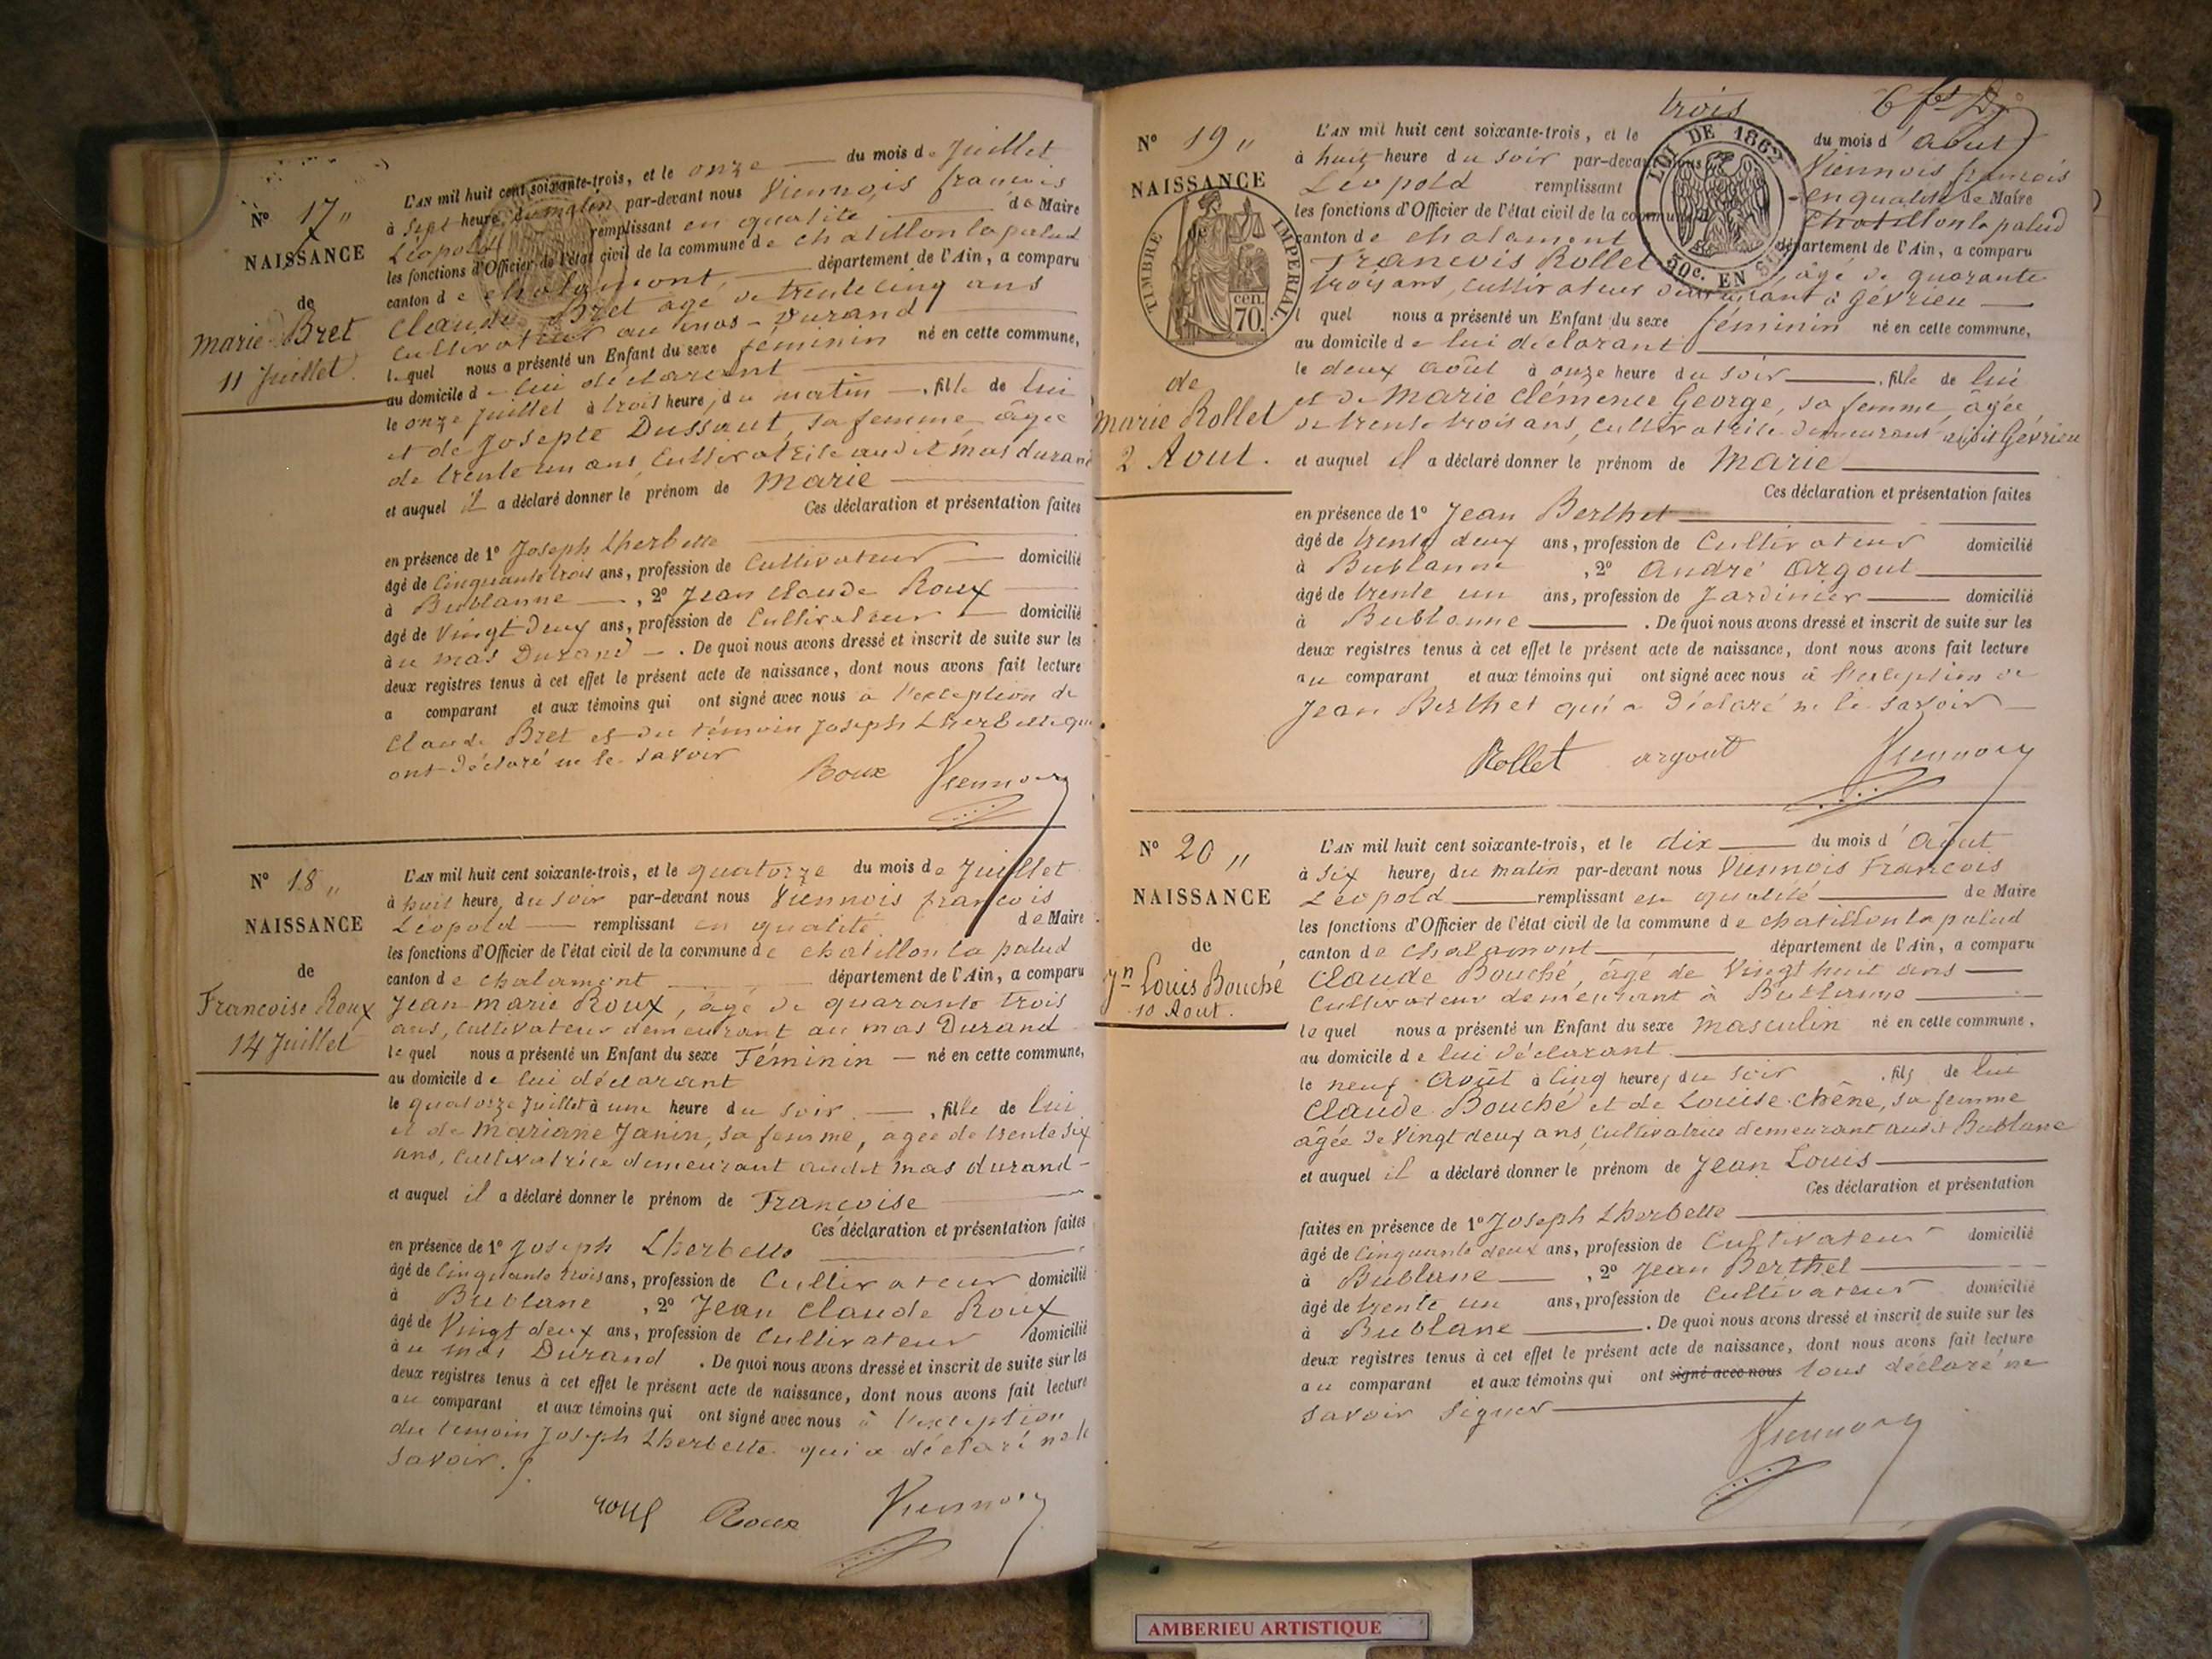 N° 17 "
NAISSANCE
de
Marie Bret
11 Juillet.
L'AN mil huit cent soixante-trois, et le onze du mois de Juillet
à Sept heure du matin par-devant nous Viennois françois
Léopold remplissant en qualité de Maire
les fonctions d'Officier de l'état civil de la commune de chatillon la palud
canton de chalamont, département de l'Ain, a comparu
Claude Bret agé de trente cinq ans
Cultivateur au mas-Durand
lequel nous a présenté un Enfant du sexe féminin né en cette commune,
au domicile de lui déclarant
le onze juillet à trois heures du matin, fille de lui
et de Josepte Dussaut, sa femme âgée
de trente un ans, Cultivatrice audit mas durand
et auquel il a déclaré donner le prénom de Marie
Ces déclaration et présentation faites
en présence de 1° Joseph Lherbette
âgé de Cinquante trois ans, profession de Cultivateur domicilié
à Bublanne, 2° Jean Claude Roux
âgé de Vingt deux ans, profession de Cultivateur domicilié
au mas Durand. De quoi nous avons dressé et inscrit de suite sur les
deux registres tenus à cet effet le présent acte de naissance, dont nous avons fait lecture
a comparant et aux témoins qui ont signé avec nous à l'exception de
Claude Bret et du témoin Joseph Lherbette qui
ont déclaré ne le savoir
Roux Viennois
N° 18 "
NAISSANCE
de
Francoise Roux
14 Juillet
L'AN mil huit cent soixante-trois, et le quatorze du mois de Juillet
à huit heure du soir par-devant nous Viennois francois
Léopold remplissant en qualité de Maire
les fonctions d'Officier de l'état civil de la commune de chatillon la palud
canton de chalamont département de l'Ain, a comparu
Jean marie Roux, âgé de quarante trois
ans, Cultivateur demeurant au mas Durand
lequel nous a présenté un Enfant du sexe Féminin né en cette commune,
au domicile de lui déclarant
le quatorze Juillet à une heure du soir, fille de lui
et de Mariane Janin, sa femme, agée de trente six
ans, Cultivatrice demeurant audit mas durand
et auquel il a déclaré donner le prénom de Francoise
Ces déclaration et présentation faites
en présence de 1° Joseph Lherbette
âgé de Cinquante trois ans, profession de Cultivateur domicilié
à Bublane, 2° Jean Claude Roux
âgé de Vingt deux ans, profession de Cultivateur domicilié
au mas Durand. De quoi nous avons dressé et inscrit de suite sur les
deux registres tenus à cet effet le présent acte de naissance, dont nous avons fait lecture
au comparant et aux témoins qui ont signé avec nous à l'exception
du temoin Joseph Lherbette qui a déclaré ne le
savoir.
Roux Viennois
trois
N° 19 "
NAISSANCE
TIMBRE IMPERIAL
70 cen.
de
Marie Rollet
2 Aout.
LOI DE 1862
50c. EN SUS
L'AN mil huit cent soixante-trois, et le du mois d'août
à huit heure du soir par-devant nous Viennois francois
Léopold remplissant en qualité de Maire
les fonctions d'Officier de l'état civil de la commune de Chatillon la palud
canton de chalamont département de l'Ain, a comparu
Francois Rollet, âgé de quarante
trois ans, Cultivateur demeurant à Gévrieu
lequel nous a présenté un Enfant du sexe féminin né en cette commune,
au domicile de lui déclarant
le deux août à onze heure du soir, fille de lui
et de Marie Clémence George, sa femme, âgée
de trente trois ans, Cultivatrice demeurant audit Gévrieu
et auquel il a déclaré donner le prénom de Marie
Ces déclaration et présentation faites
en présence de 1° Jean Berthet
âgé de trente deux ans, profession de Cultivateur domicilié
à Bublanne, 2° André Argout
âgé de trente un ans, profession de Jardinier domicilié
à Bublanne. De quoi nous avons dressé et inscrit de suite sur les
deux registres tenus à cet effet le présent acte de naissance, dont nous avons fait lecture
au comparant et aux témoins qui ont signé avec nous à l'exception de
Jean Berthet qui a déclaré ne le savoir
Rollet argout Viennois
N° 20 "
NAISSANCE
de
Jn Louis Bouché
10 Aout.
L'AN mil huit cent soixante-trois, et le dix du mois d'Août
à six heures du matin par-devant nous Viennois Francois
Léopold remplissant en qualité de Maire
les fonctions d'Officier de l'état civil de la commune de chatillon la palud
canton de chalamont département de l'Ain, a comparu
Claude Bouché, âgé de Vingt huit ans
Cultivateur demeurant à Bublanne
lequel nous a présenté un Enfant du sexe masculin né en cette commune,
au domicile de lui déclarant
le neuf Août à cinq heures du soir, fils de lui
Claude Bouché et de Louise Chêne, sa femme
âgée de Vingt deux ans, Cultivatrice demeurant audit Bublane
et auquel il a déclaré donner le prénom de Jean Louis
Ces déclaration et présentation
faites en présence de 1° Joseph Lherbette
âgé de Cinquante deux ans, profession de Cultivateur domicilié
à Bublane, 2° Jean Berthet
âgé de trente un ans, profession de Cultivateur domicilié
à Bublane. De quoi nous avons dressé et inscrit de suite sur les
deux registres tenus à cet effet le présent acte de naissance, dont nous avons fait lecture
au comparant et aux témoins qui ont signé avec nous tous déclaré ne
savoir signer
Viennois
AMBERIEU ARTISTIQUE